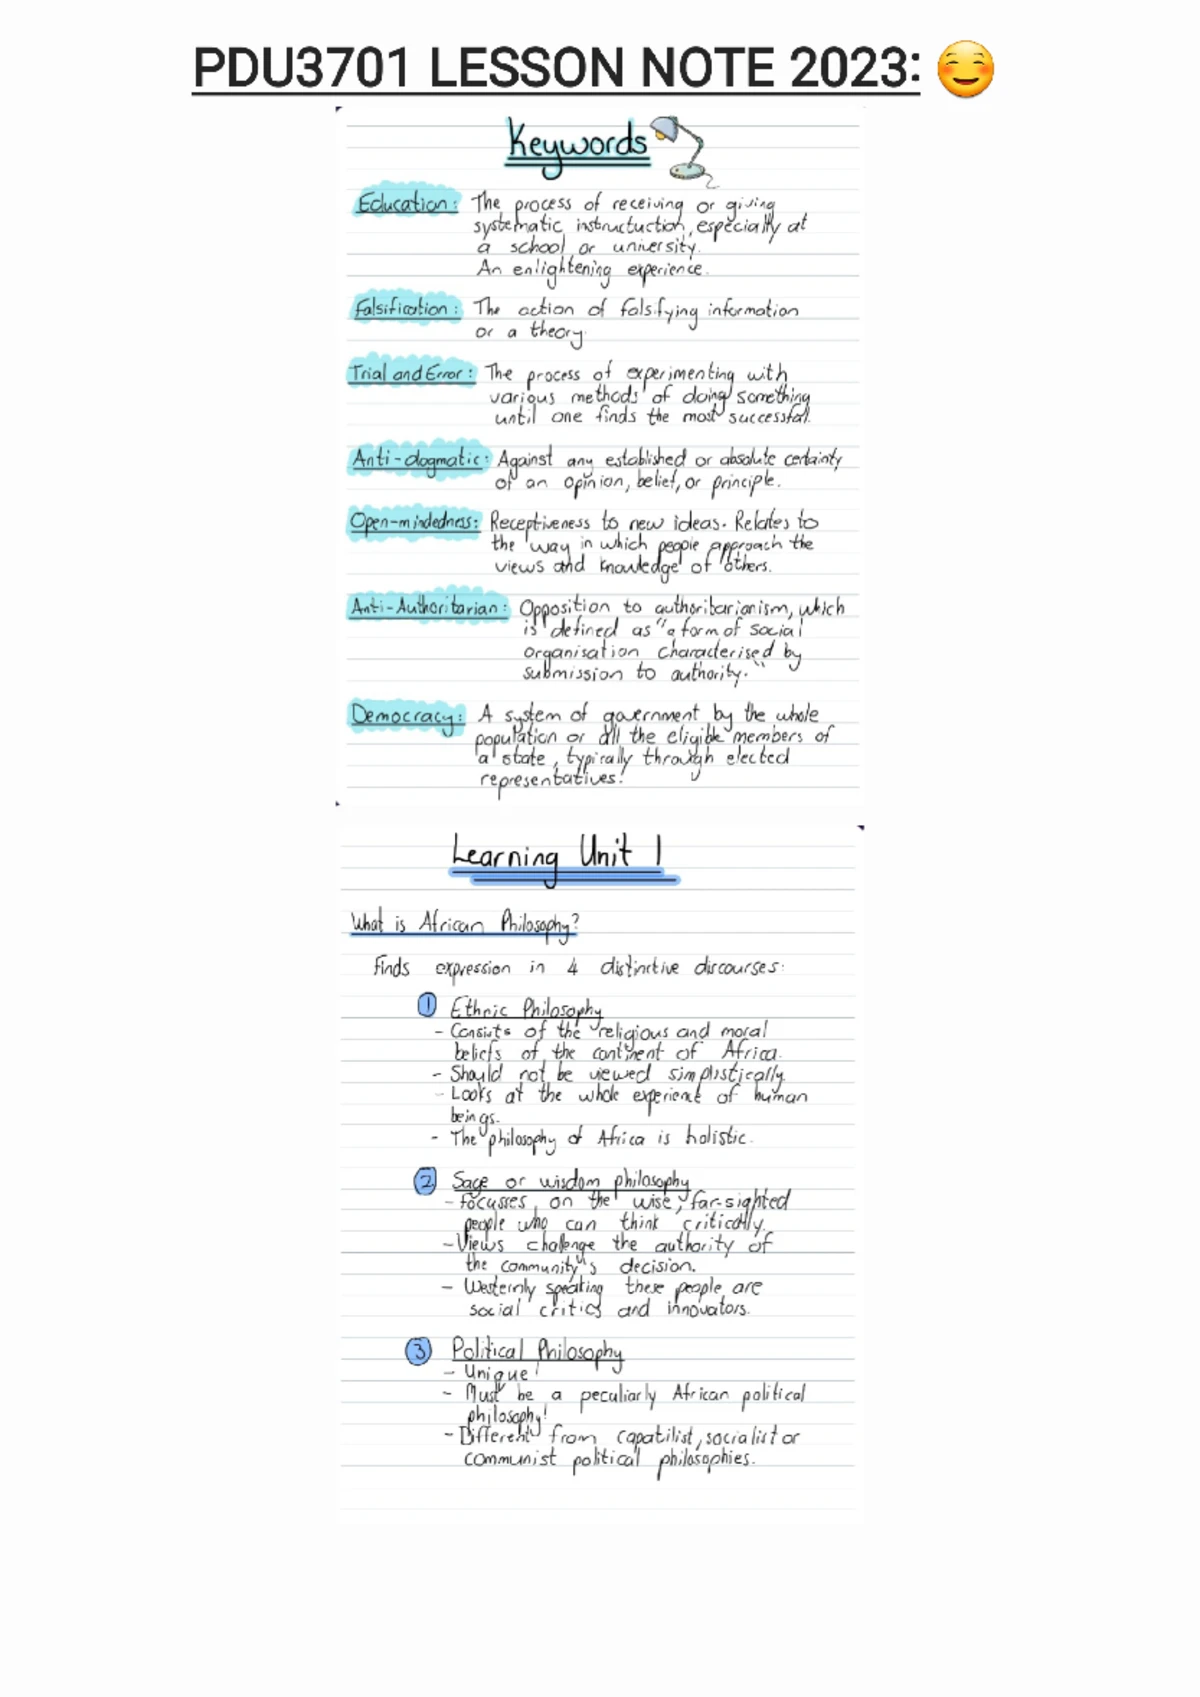 PDU3701 LESSON NOTE 2023:
Keywords
Education: The process of receiving or giving
systematic instructuction, especially at
a school or university.
An enlightening experience.
Falsification: The action of falsifying information
or a theory.
Trial and Error: The process of experimenting with
various methods of doing something
until one finds the most successful.
Anti-dogmatic: Against any established or absolute certainty
of an opinion, belief, or principle.
Open-mindedness: Receptiveness to new ideas. Relates to
the way in which people approach the
views and knowledge of others.
Anti-Authoritarian: Opposition to authoritarianism, which
is defined as "a form of social
organisation characterised by
submission to authority."
Democracy: A system of government by the whole
population or all the eligible members of
a state, typically through elected
representatives.
Learning Unit 1
What is African Philosophy?
Finds expression in 4 distinctive discourses:
1 Ethnic Philosophy
- Consists of the religious and moral
beliefs of the continent of Africa.
- Should not be viewed simplistically.
- Looks at the whole experience of human
beings.
- The philosophy of Africa is holistic.
2 Sage or wisdom philosophy
- Focusses on the wise, far-sighted
people who can think critically.
- Views challenge the authority of
the community's decision.
- Westernly speaking these people are
social critics and innovators.
3 Political Philosophy
- Unique!
- Must be a peculiarly African political
philosophy!
- Different from capatilist, socialist or
communist political philosophies.